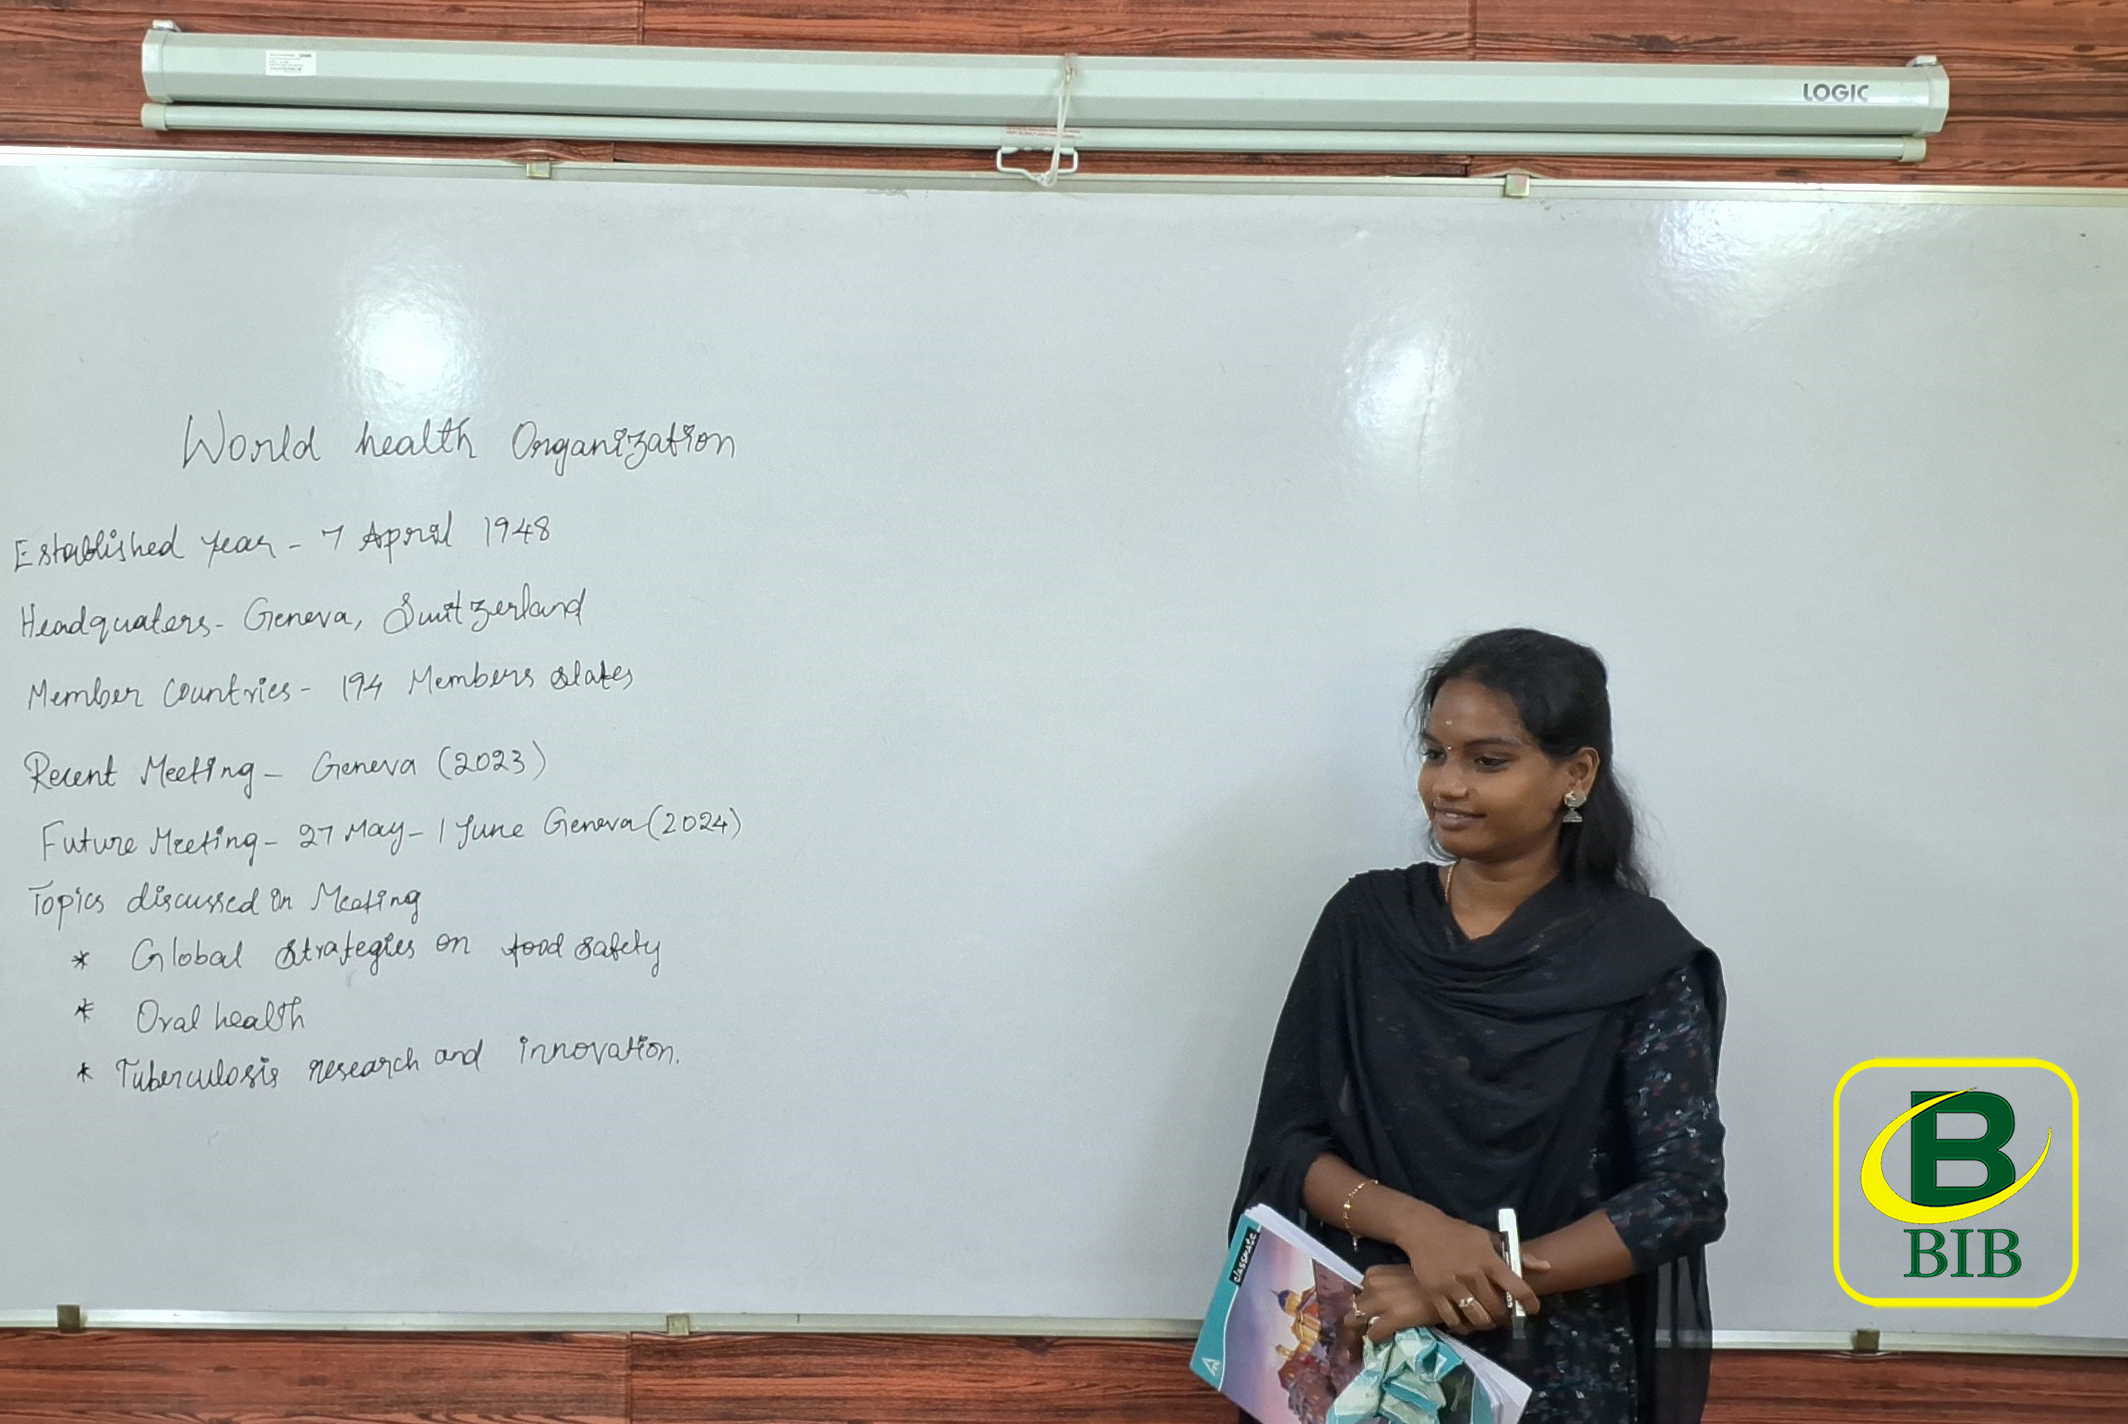 LOGIC
World health Organization
Established year - 7 April 1948
Headquaters - Geneva, Switzerland
Member Countries - 194 Members states
Recent Meeting - Geneva (2023)
Future Meeting - 27 May - 1 June Geneva (2024)
Topics discussed in Meeting
* Global strategies on food safety
* Oral health
* Tuberculosis research and innovation.
classmate
B
BIB